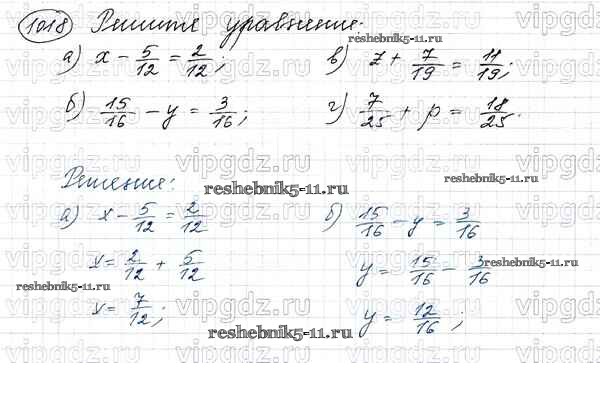 1018 Решите уравнение:
а) x - 5/12 = 2/12; в) z + 7/19 = 11/19;
б) 15/16 - y = 3/16; г) 7/25 + p = 18/25.
Решение:
а) x - 5/12 = 2/12 б) 15/16 - y = 3/16
x = 2/12 + 5/12 y = 15/16 - 3/16
x = 7/12; y = 12/16;
vipgdz.ru
reshebnik5-11.ru